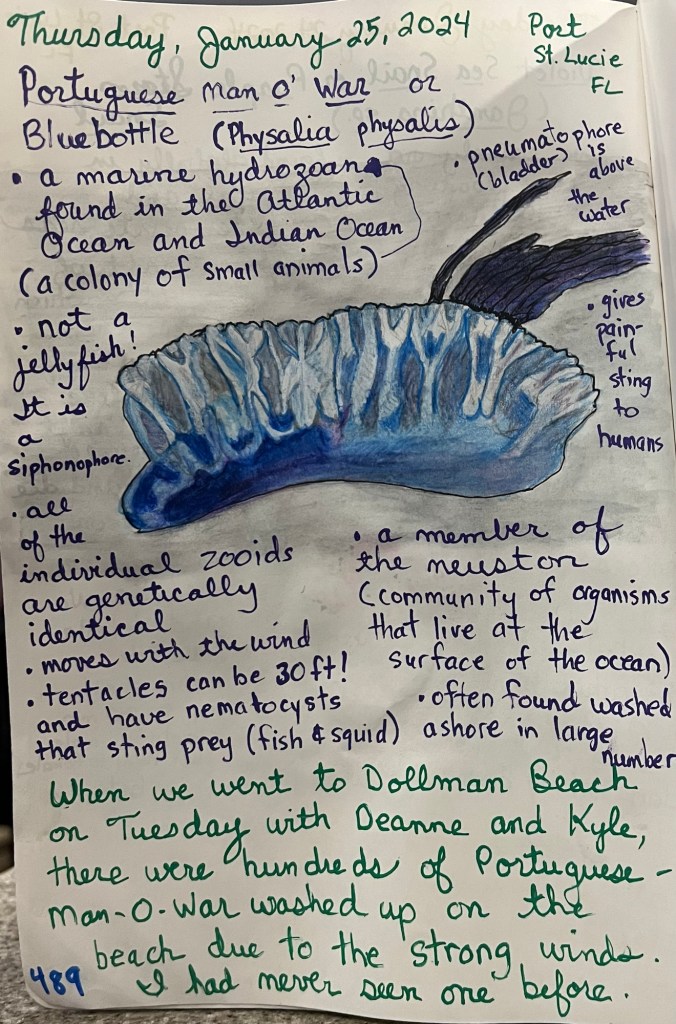 Thursday, January 25, 2024
Port
St. Lucie
FL
Portuguese Man O' War or
Bluebottle (Physalia physalis)
• a marine hydrozoan
found in the Atlantic
Ocean and Indian Ocean
(a colony of small animals)
• pneumatophore
(bladder) is
above
the
water
• not a
jellyfish!
It is
a
siphonophore.
• gives
pain-
ful
sting
to
humans
• all
of the
individual zooids
are genetically
identical
• moves with the wind
• tentacles can be 30ft!
and have nematocysts
that sting prey (fish & squid)
• a member of
the neuston
(community of organisms
that live at the
surface of the ocean)
• often found washed
ashore in large
number
When we went to Dollman Beach
on Tuesday with Deanne and Kyle,
there were hundreds of Portuguese-
Man-O-War washed up on the
beach due to the strong winds.
I had never seen one before.
489